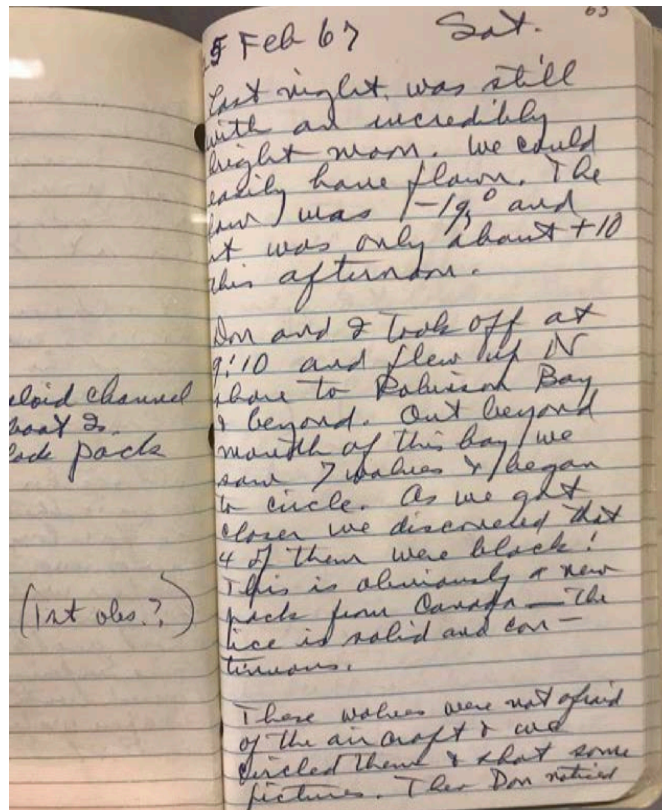 63
5 Feb 67 Sat.
Last night was still
with an incredibly
bright moon. We could
easily have flown. The
low was -19° and
it was only about +10
this afternoon.
Don and I took off at
9:10 and flew up N
shore to Robinson Bay
& beyond. Out beyond
mouth of this bay we
saw 7 wolves & began
to circle. As we got
closer we discovered that
4 of them were black!
This is obviously a new
pack from Canada — the
ice is solid and con-
tinuous.
These wolves were not afraid
of the aircraft & we
circled them & shot some
pictures. Then Don noticed
channel
pack
(1st obs.?)